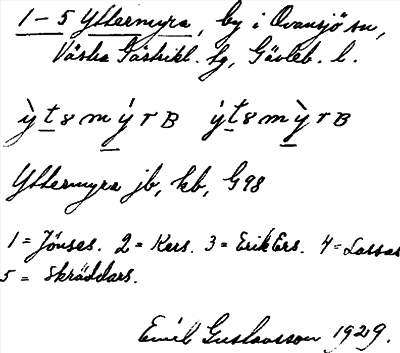 1-5 Yttermyra, by i Ovansjö sn,
Västra Gästrikl. tg, Gävleb. l.
ỳt8mýrB ýt8mỳrB
Yttermyra jb, kb, G98
1 = Jönses. 2 = Kers. 3 = ErikErs. 4 = Lasses
5 = Skräddars.
Emil Gustavsson 1929.